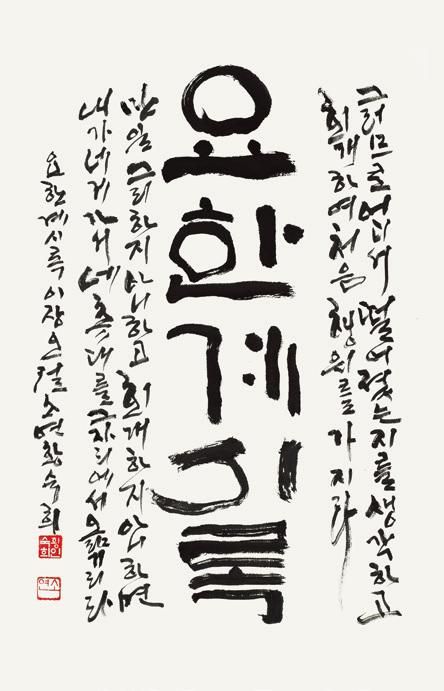 그러므로 어디서 떨어졌는지를 생각하고
회개하여 처음 행위를 가지라
요한계시록
만일 그리하지 아니하고 회개하지 아니하면
내가 네게 가서 네 촛대를 그 자리에서 옮기리라
요한계시록 이장 오절 소연 황숙희
소연